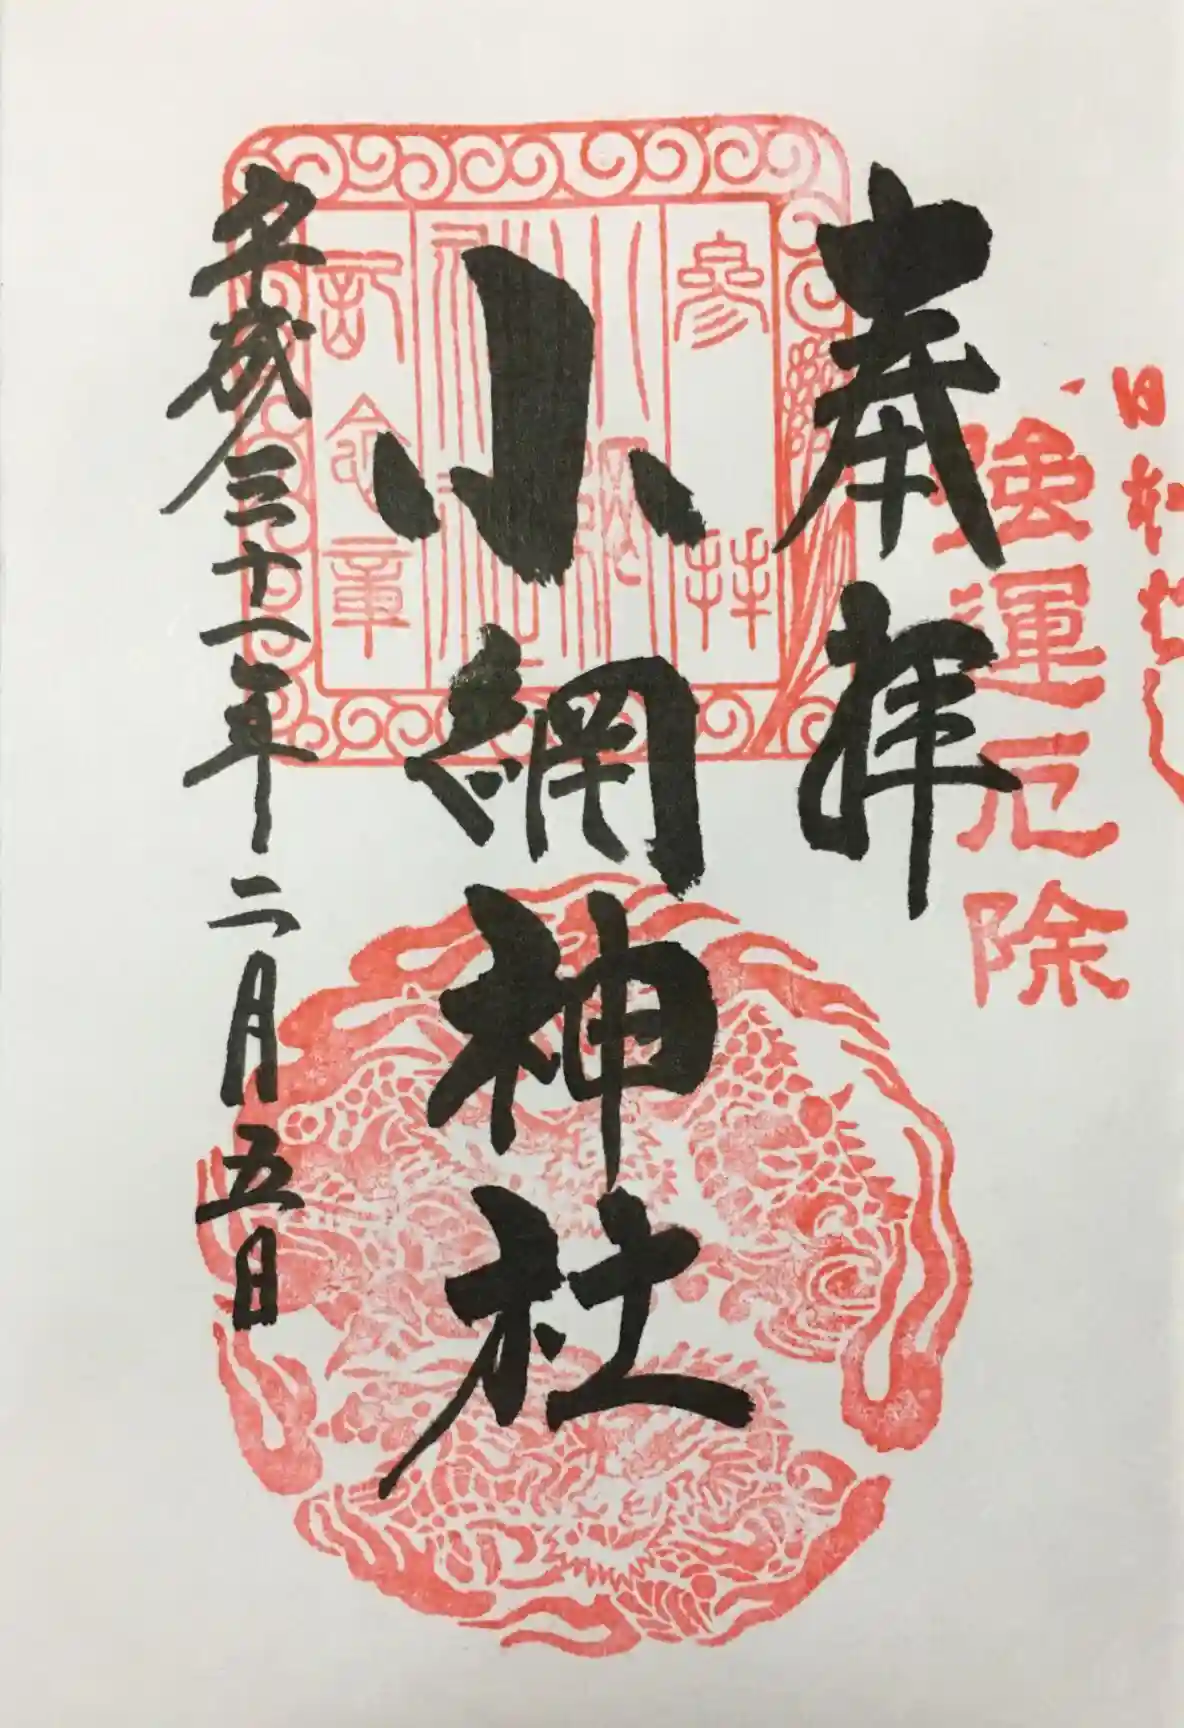 強運厄除
奉拝
参拝
小網神社
記念章
平成三十一年二月五日